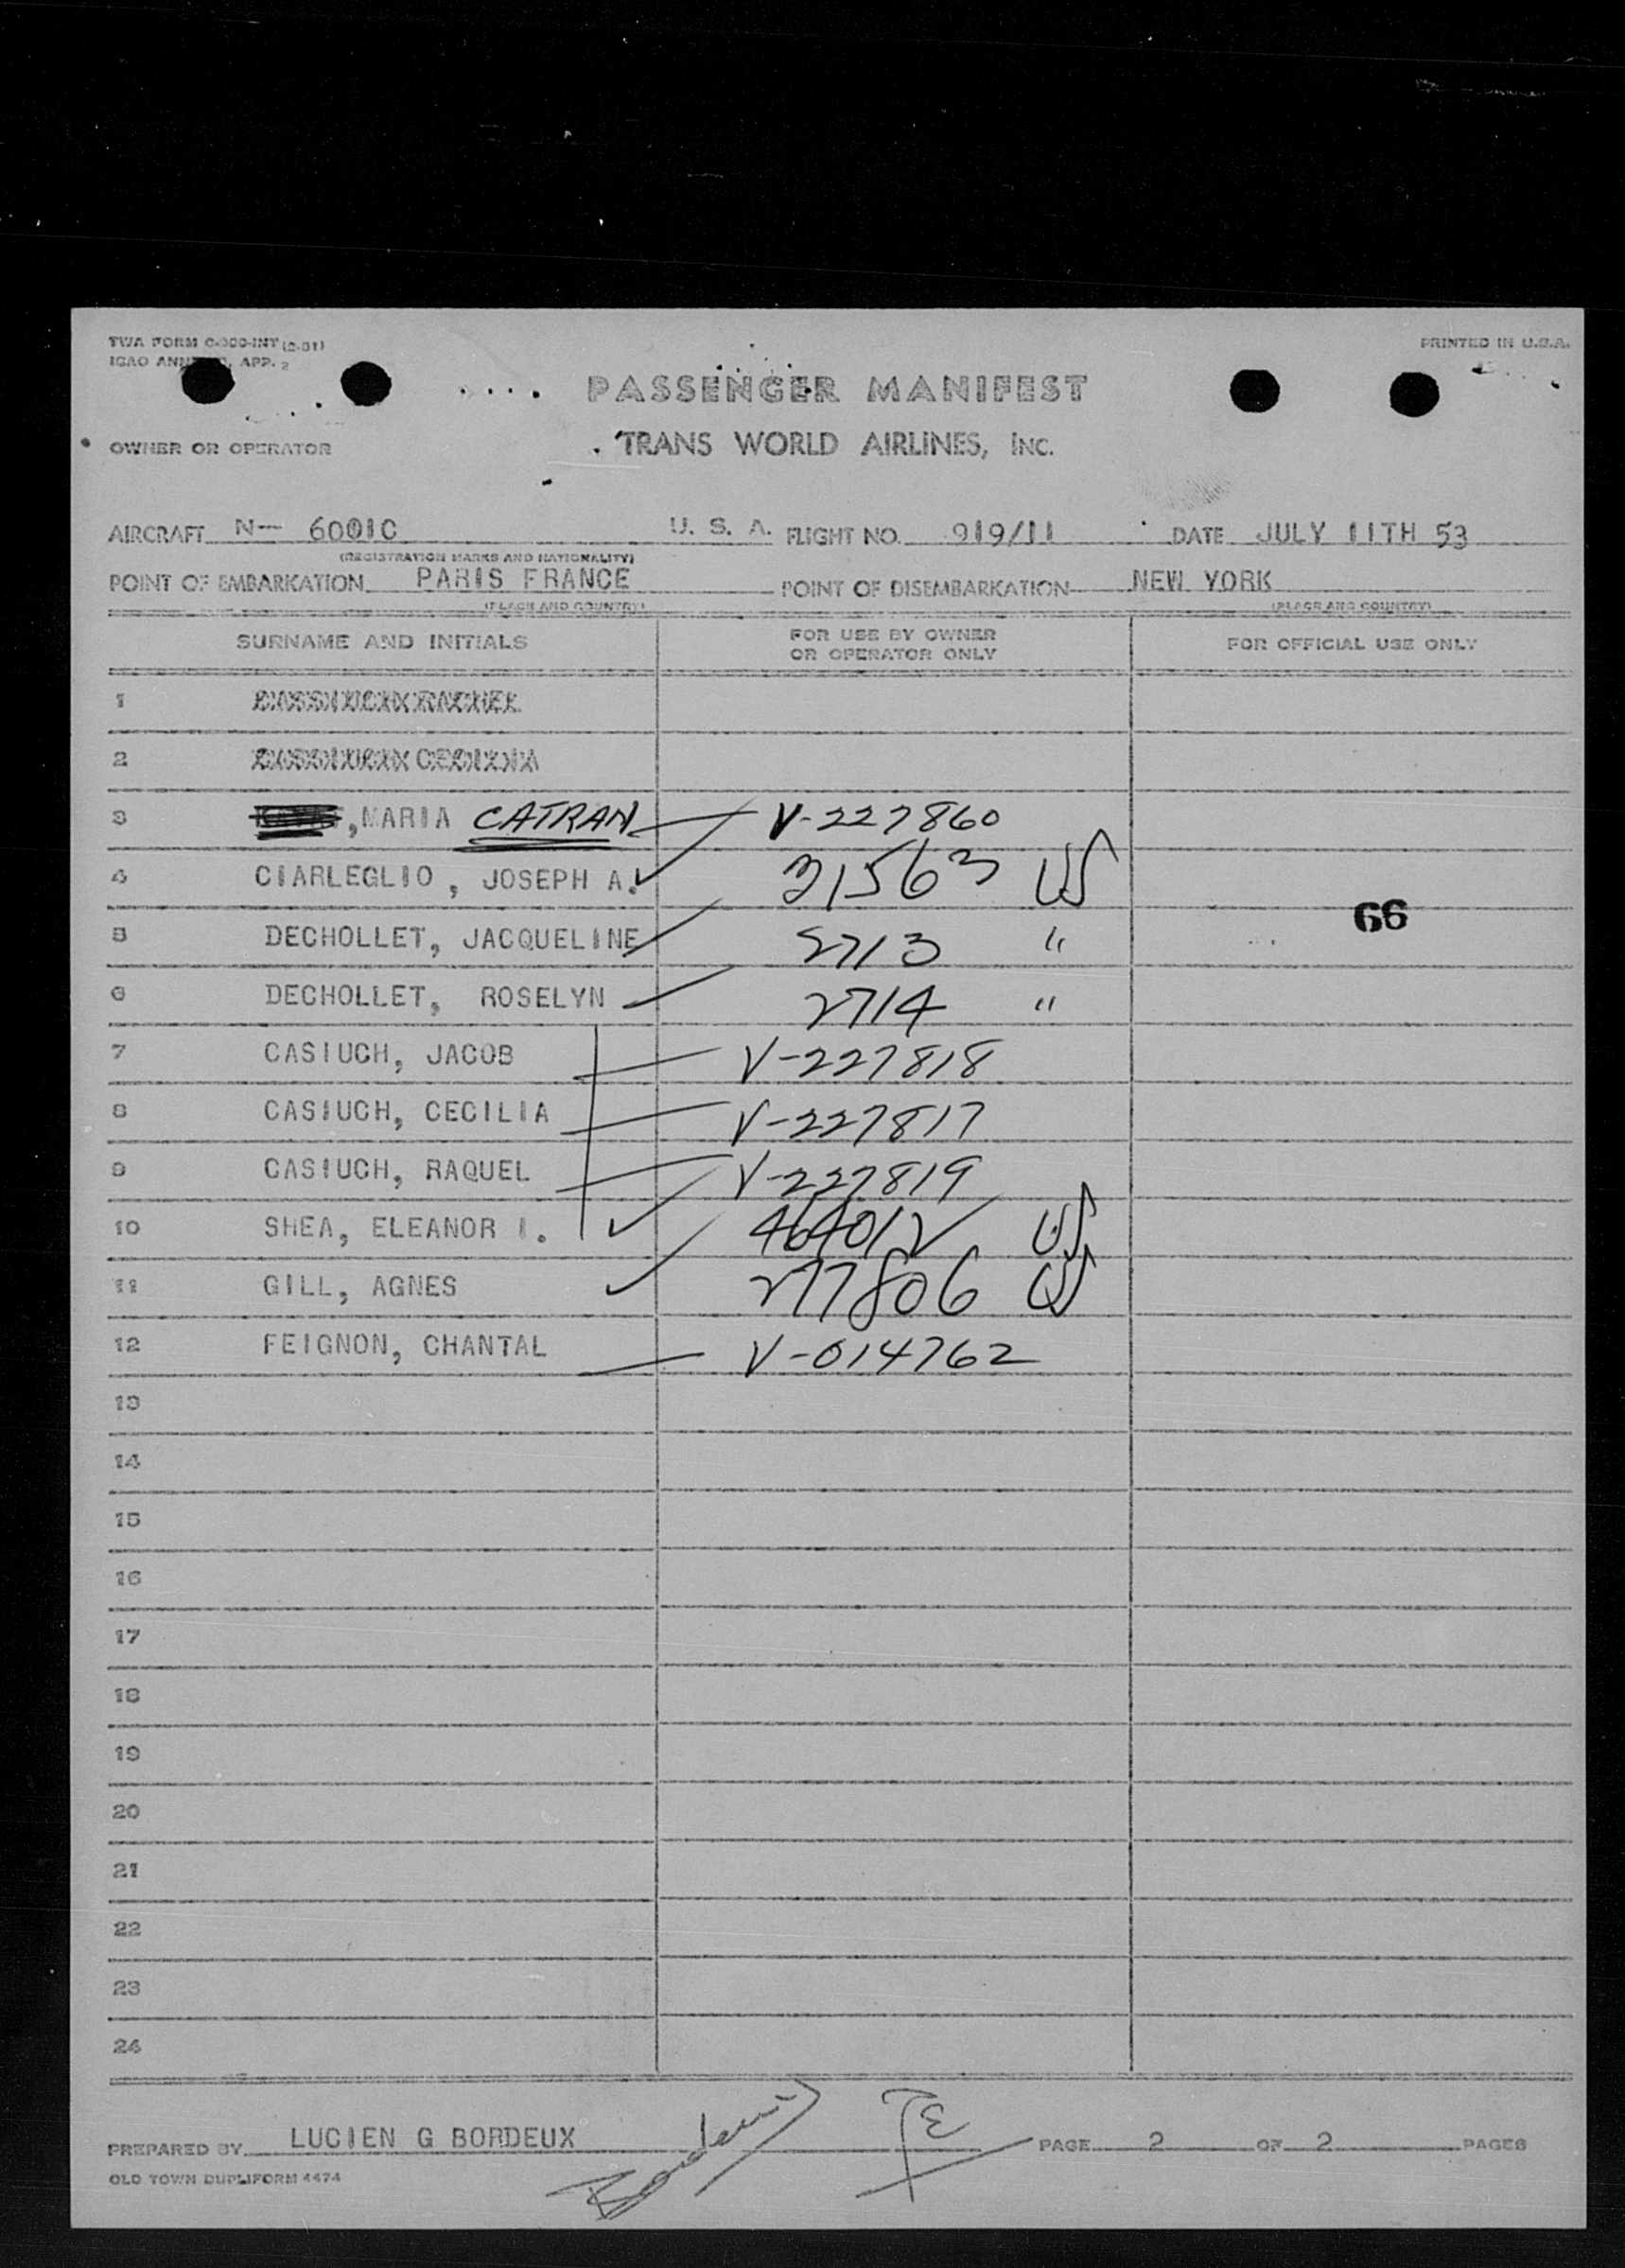 TWA FORM C-300-INT (2-51)
PRINTED IN U.S.A.
ICAO APP. 2
PASSENGER MANIFEST
OWNER OR OPERATOR TRANS WORLD AIRLINES, INC.
AIRCRAFT N-- 6001C U. S. A. FLIGHT NO. 919/11 DATE JULY 11TH 53
(REGISTRATION MARKS AND NATIONALITY)
POINT OF EMBARKATION PARIS FRANCE POINT OF DISEMBARKATION NEW YORK
(PLACE AND COUNTRY) (PLACE AND COUNTRY)
SURNAME AND INITIALS FOR USE BY OWNER OR OPERATOR ONLY FOR OFFICIAL USE ONLY
1
2
3 ,MARIA CATRAN V-227860
4 CIARLEGLIO , JOSEPH A. 31563 US
66
5 DECHOLLET, JACQUELINE 2713 "
6 DECHOLLET, ROSELYN 2714 "
7 CASIUCH, JACOB V-227818
8 CASIUCH, CECILIA V-227817
9 CASIUCH, RAQUEL V-227819
10 SHEA, ELEANOR I. 464012 US
11 GILL, AGNES 277806 US
12 FEIGNON, CHANTAL V-014762
13
14
15
16
17
18
19
20
21
22
23
24
PREPARED BY LUCIEN G BORDEUX PAGE 2 OF 2 PAGES
OLD TOWN DUPLIFORM 4474